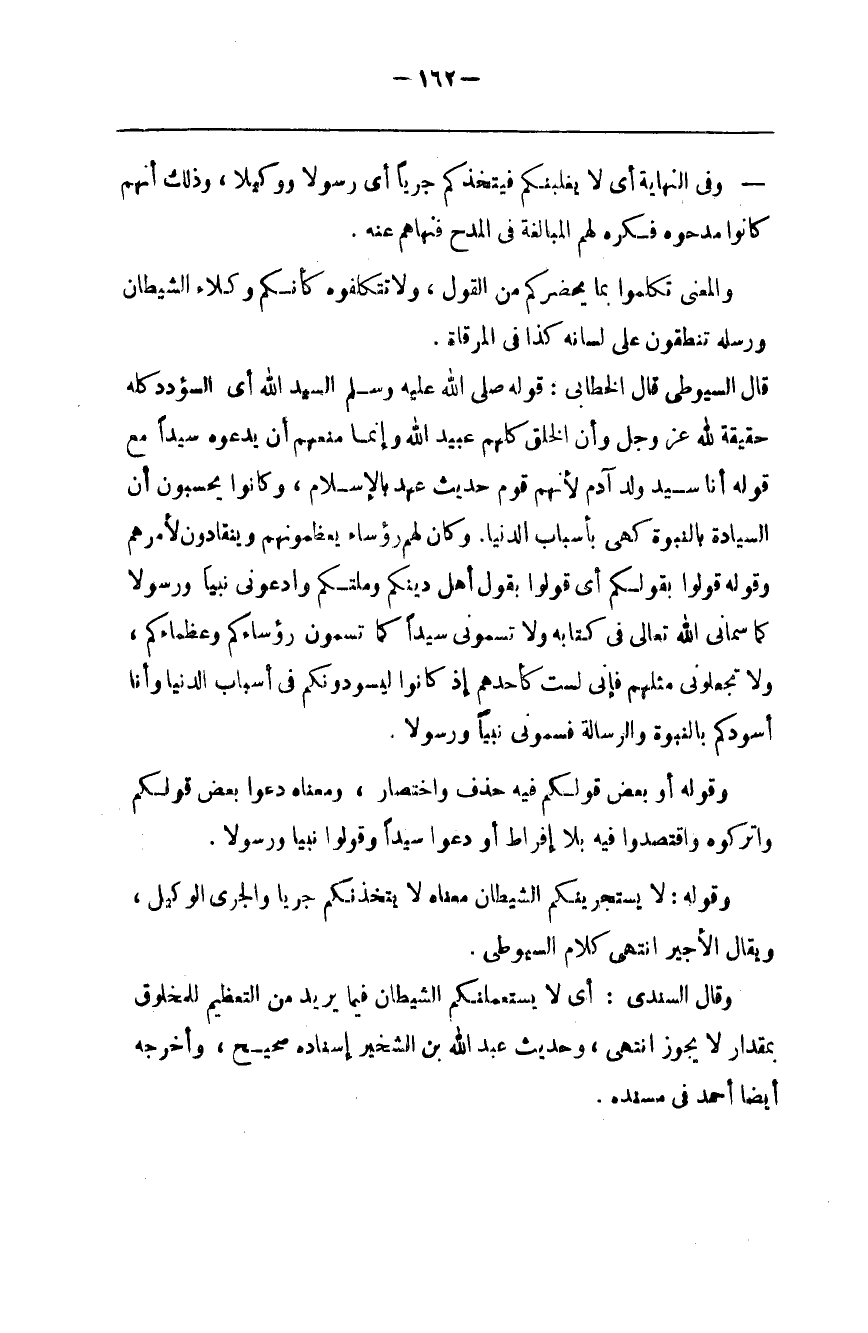 — ١٦٢ —
— وفى النهاية أى لا يغلبنكم فيتخذكم جرياً أى رسولا ووكيلا ، وذلك أنهم
كانوا مدحوه فكره لهم المبالغة فى المدح فنهاهم عنه .
والمعنى تكلموا بما يحضركم من القول ، ولا تتكلفوه كأنكم وكلاء الشيطان
ورسله تنطقون على لسانه كذا فى المرقاة .
قال السيوطى قال الخطابى : قوله صلى الله عليه وسلم السيد الله أى السؤدد كله
حقيقة لله عز وجل وأن الخلق كلهم عبيد الله وإنما منعهم أن يدعوه سيداً مع
قوله أنا سيد ولد آدم لأنهم قوم حديث عهد بالإسلام ، وكانوا يحسبون أن
السيادة بالنبوة كهى بأسباب الدنيا. وكان لهم رؤساء يعظمونهم وينقادون لأمرهم
وقوله قولوا بقولكم أى قولوا بقول أهل دينكم وملتكم وادعونى نبياً ورسولا
كما سمانى الله تعالى فى كتابه ولا تسمونى سيداً كما تسمون رؤساءكم وعظماءكم ،
ولا تجعلونى مثلهم فإنى لست كأحدهم إذ كانوا ليسودونكم فى أسباب الدنيا وأنا
أسودكم بالنبوة والرسالة فسمونى نبياً ورسولا .
وقوله أو بعض قولكم فيه حذف واختصار ، ومعناه دعوا بعض قولكم
واتركوه واقتصدوا فيه بلا إفراط أو دعوا سيداً وقولوا نبيا ورسولا .
وقوله : لا يستجرينكم الشيطان معناه لا يتخذنكم جريا والجرى الوكيل ،
ويقال الأجير انتهى كلام السيوطى .
وقال السندى : أى لا يستعملنكم الشيطان فيما يريد من التعظيم للمخلوق
بمقدار لا يجوز انتهى ، وحديث عبد الله بن الشخير إسناده صحيح ، وأخرجه
أيضا أحمد فى مسنده .